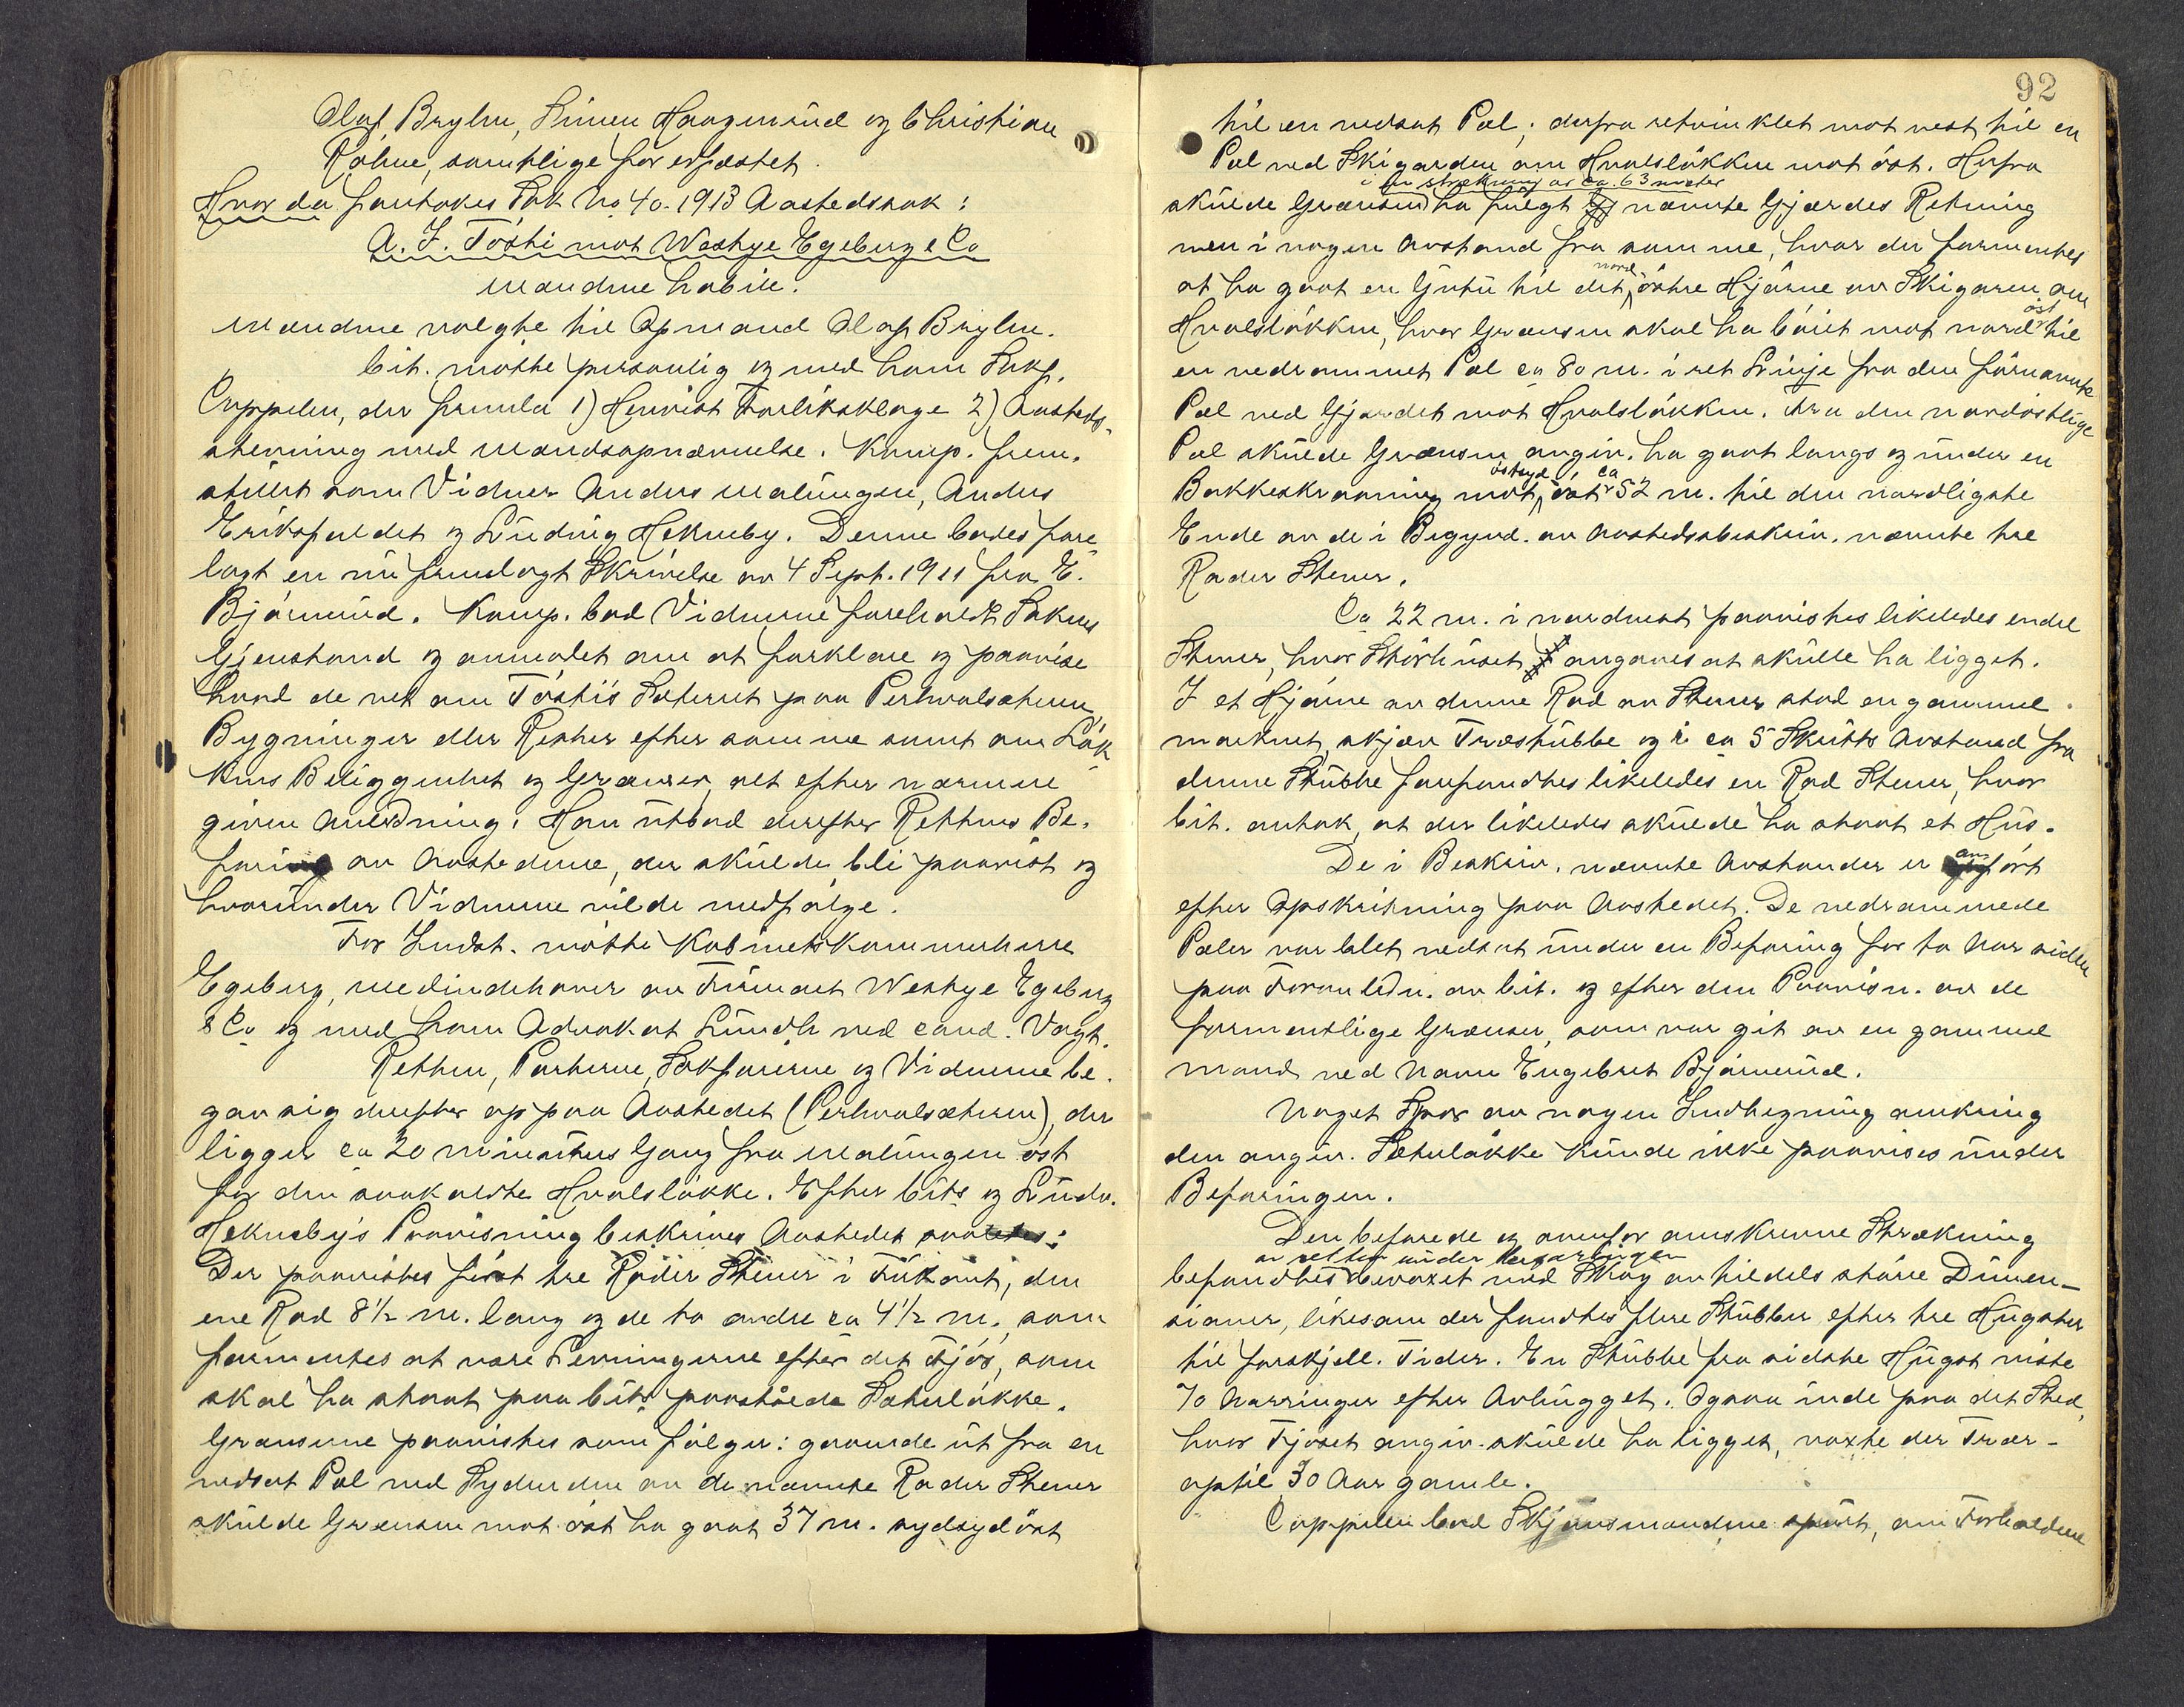 Olaf Brylm, Simen Haagensrud og Christian
Rølne, samtlige før edfæstet.
Hvor da foretokes Sak No 40. 1913 Aastedssak:
A. J. Tøsti mot Westye Egeberg & Co
Mændene habile.
Mændene valgte til Opmand Olaf Brylm.
Cit. møtte personlig og med ham Sakf.
Cappelen, der fremla 1) Henvist Forliksklage 2) Aasteds-
stevning med Mandsopnævnelse. Komp. frem-
stillet som Vidner Anders Malungen, Anders
Eriksfaldet og Ludvig Hekneby. Denne bades fore-
lagt en nu fremlagt Skrivelse av 4 Sept. 1911 fra E.
Bjørnerud. Komp. bad Vidnerne foreholdt Sakens
Gjenstand og anmodet om at forklare og paavise
hvad de vet om Tøsti's Sæterret paa Perhvalsæteren,
Bygninger eller Rester efter samme samt om Løk-
kens Beliggenhet og Grænser, alt efter nærmere
given Anledning. Han utbad derefter Rettens Be-
faring av Aastederne, der skulde bli paavist og
hvorunder Vidnerne vilde medfølge.
For Indst. møtte Kabinetskammerherre
Egeberg, Medindehaver av Firmaet Westye Egeberg
& Co og med ham Advokat Lundh ved cand. Vogt.
Retten, Parterne, Sakførerne og Vidnerne be-
gav sig derefter op paa Aastedet (Perhvalsæteren), der
ligger ca 20 minutters Gang fra Malungen øst
for den saakaldte Hvalsløkke. Efter Cits og Ludv.
Hekneby's Paavisning beskrives Aastedet saaledes:
Der paavistes først tre Rader Stener i Firkant, den
ene Rad 8 1/2 m. lang og de to andre ca 4 1/2 m., som
formentes at være Levningerne efter det Fjøs, som
skal ha staat paa Cits paastaaede Sæterløkke.
Grænserne paavistes som følger: gaaende ut fra en
nedsat Pæl ved Sydenden av de nævnte Rader Stener
skulde Grænsen mot øst ha gaat 37 m. sydsydøst
92
til en nedsat Pæl; derfra retvinklet mot vest til en
Pæl ved Skigarden om Hvalsløkken mot øst. Herfra
i en strækning av ca. 63 meter
skulde Grænsen ha fulgt nævnte Gjærdes Retning
men i nogen Avstand fra samme, hvor der formentes
at ha gaat en Gutu til det nord-østre Hjørne av Skigaren om
Hvalsløkken, hvor Grænsen skal ha bøiet mot nordøst til
en nedrammet Pæl ca 80 m. i ret Linje fra den førnævnte
Pæl ved Gjærdet mot Hvalsløkken. Fra den nordøstlige
Pæl skulde Grænsen angiv. ha gaat langs og under en
Bakkeskraaning mot østsyd øst ca 52 m. til den nordligste
Ende av de i Begynd. av Aastedsbeskriv. nævnte tre
Rader Stener.
Ca 22 m. i nordvest paavistes likeledes endel
Stener, hvor Størhuset angaves at skulle ha ligget.
I et Hjørne av denne Rad av Stener stod en gammel
morknet, skjør Træstubbe og i ca 5 Skritts Avstand fra
denne Stubbe forfandtes likeledes en Rad Stener, hvor
Cit. antok, at der likeledes skulde ha staat et Hus.
De i Beskriv. nævnte Avstander er anført
efter Opskritning paa Aastedet. De nedrammede
Pæler var blet nedsat under en Befaring for to Aar siden
paa Foranledn. av Cit. og efter den Paavisn. av de
formentlige Grænser, som var git av en gammel
Mand ved Navn Engebret Bjørnerud.
Noget Spor av nogen Indhegning omkring
den angiv. Sæterløkke kunde ikke paavises under
Befaringen.
Den befarede og ovenfor omskrevne Strækning
av retten under befaringen
befandtes bevoxet med Skog av tildels større Dimen-
sioner, likesom der fandtes flere Stubber efter tre Hugster
til forskjell. Tider. En Stubbe fra sidste Hugst viste
70 Aarringer efter Avhugget. Ogsaa inde paa det Sted,
hvor Fjøset angiv. skulde ha ligget, vokste der Trær
optil 30 Aar gamle.
Cappelen bad Skjønsmændene spurt, om Forholdene